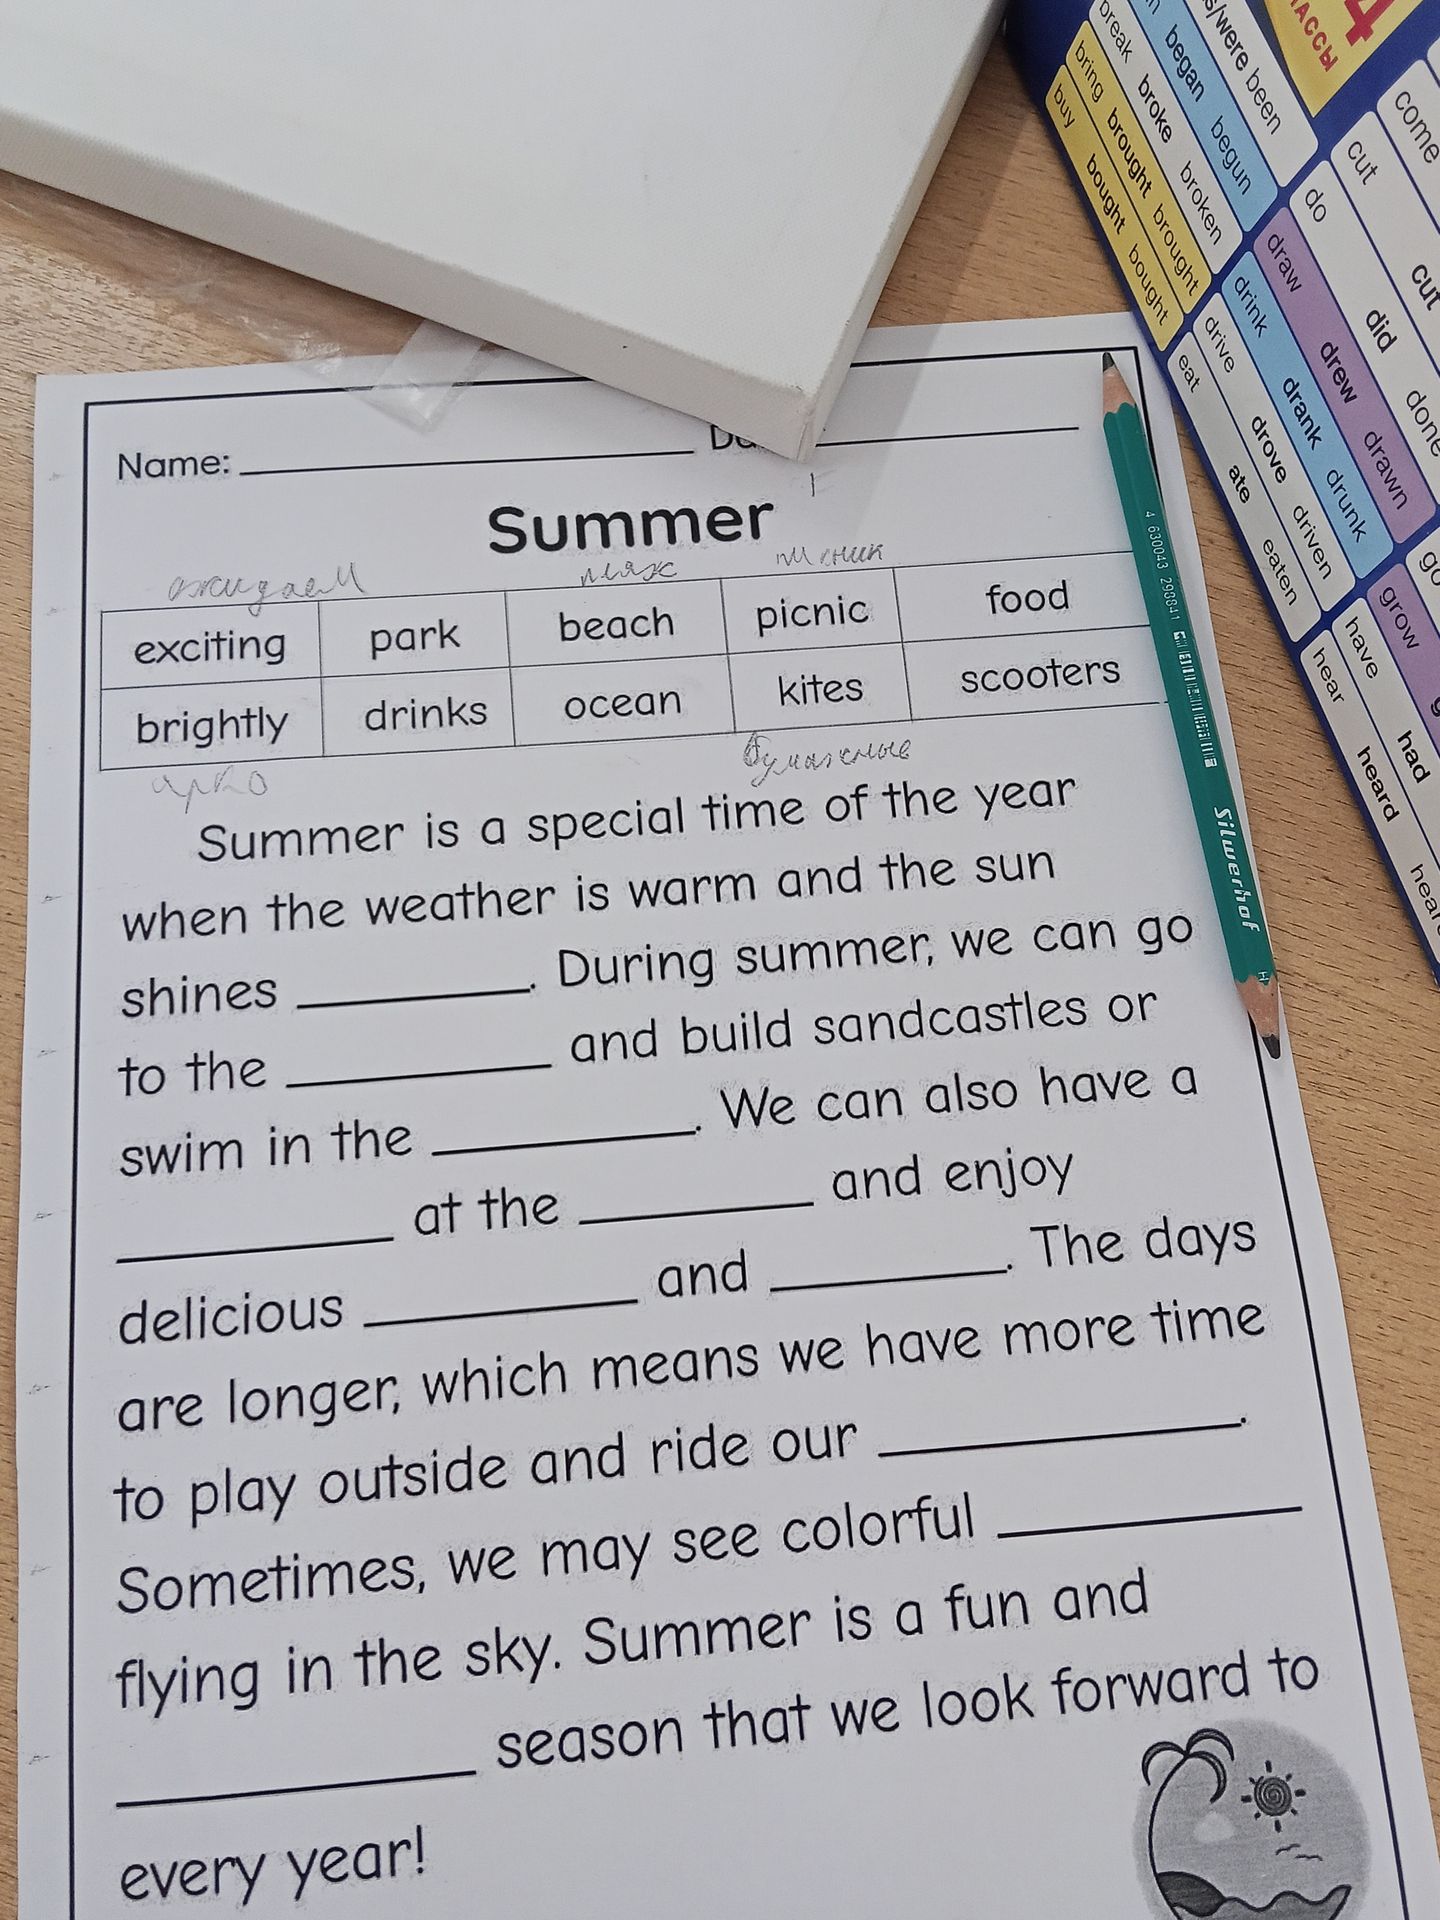 4
КЛАССЫ
was/were been
began begun
break broke broken
bring brought brought
buy bought bought
come
cut cut
do did done
draw drew drawn
drink drank drunk
drive drove driven
eat ate eaten
go
grow
have had
hear heard heard
Name:
Summer
ожидаем пляж пикник
exciting park beach picnic food
brightly drinks ocean kites scooters
ярко бумажные
Summer is a special time of the year
when the weather is warm and the sun
shines ________. During summer, we can go
to the ________ and build sandcastles or
swim in the ________. We can also have a
________ at the ________ and enjoy
delicious ________ and ________. The days
are longer, which means we have more time
to play outside and ride our ________.
Sometimes, we may see colorful ________
flying in the sky. Summer is a fun and
________ season that we look forward to
every year!
4 630043 293841
Silwerhof